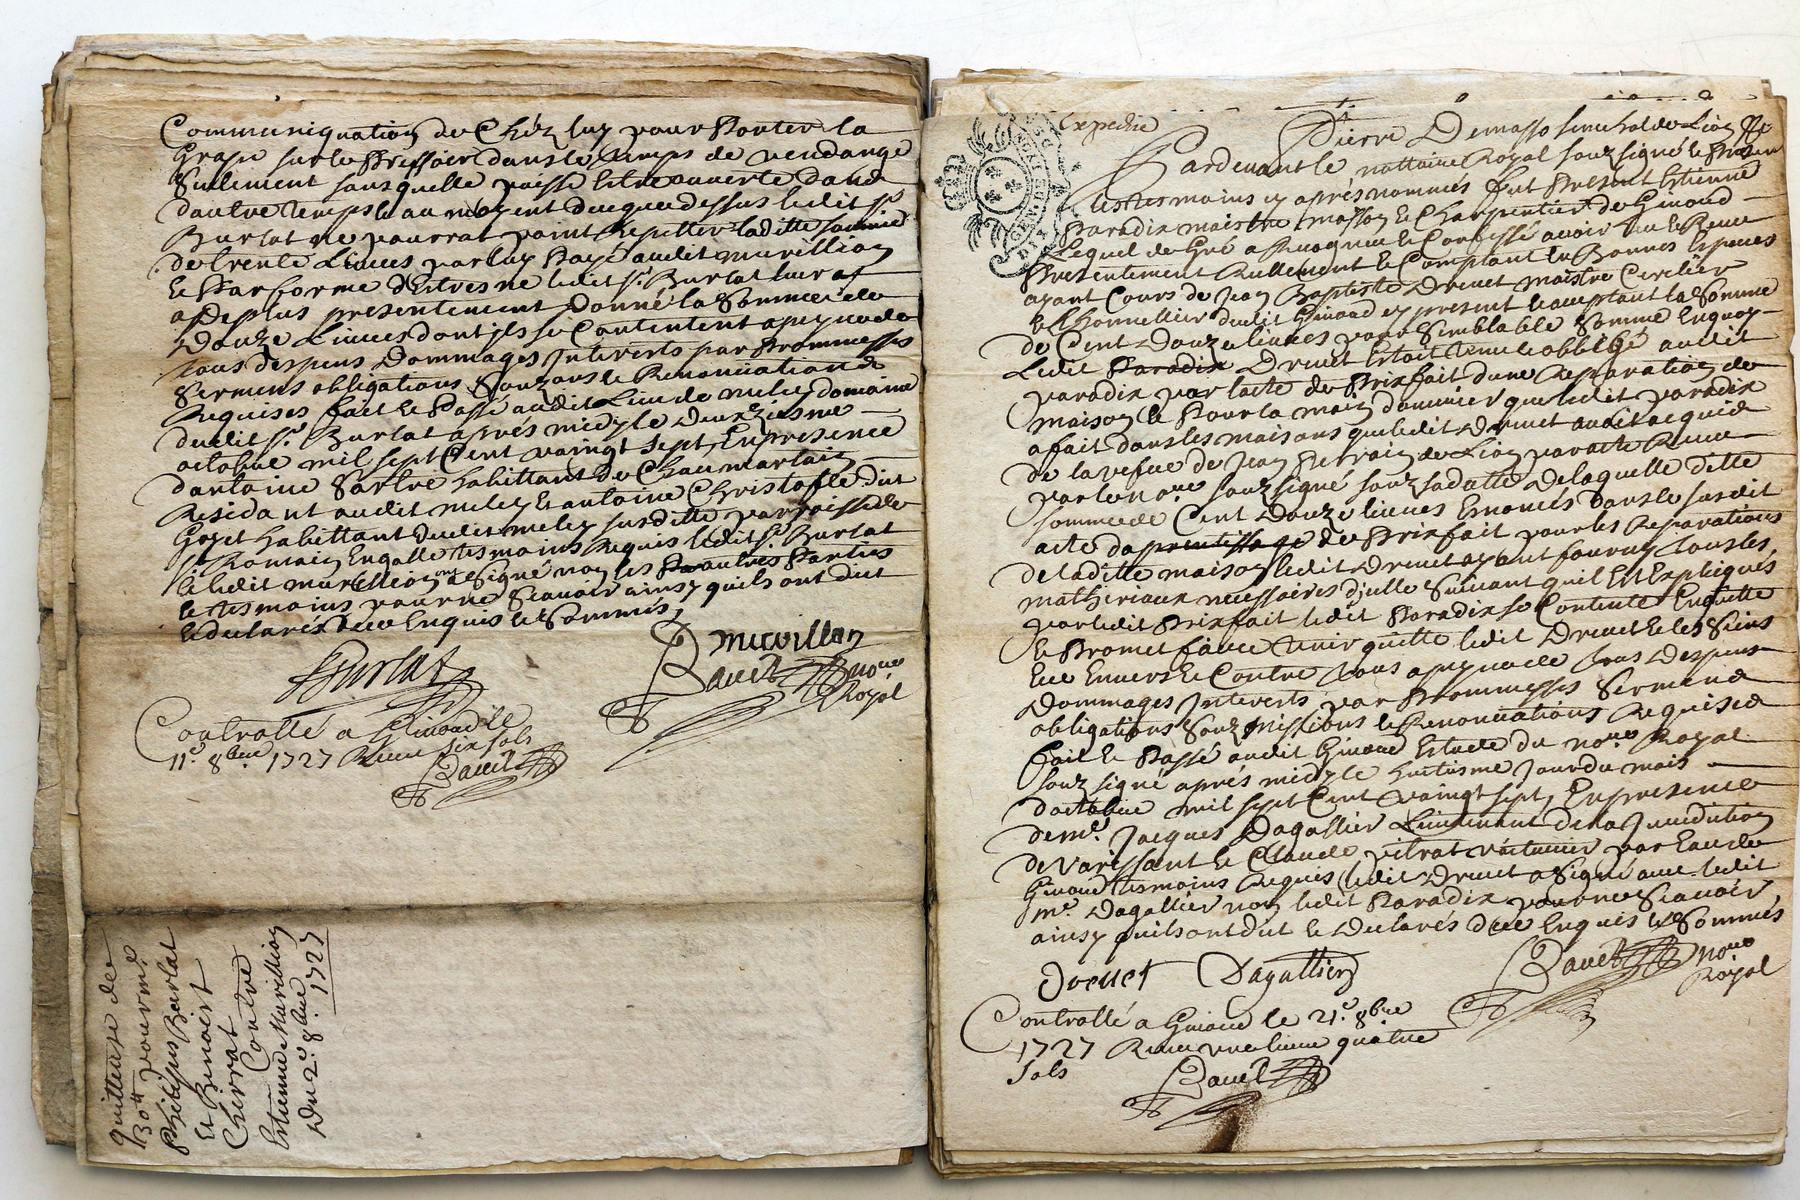 Communiquation de Chéz luy pour Porter la
Grape sur le Pressoir dans le temps de vendange
Seulement sans quelle puisse Estre ouverte dans
dautre temps & au moyent duqueu dessus ledit sr.
Burlat ne pourrat point Repetter laditte somme
de trente Livres par luy Payé audit murillion
le Par forme dEstresne ledit sr. Burlat
a De plus presentement Donné la Somme de
Douze Livres dont ils se Contentent a peyne de
tous despens Dommages Interests par Prommesses
Sermens obligations Souz ons & Renonciations
Requises fait & Passé audit Lieu de miley domaine
dudit sr. Burlat aprés midy le deuxziesme
octobre mil sept Cent vaingt sept, En presence
dantoine Sartre habittant de Chaumartain
Residant audit miley & antoine Christofle dit
Goyet habittant dudit miley susditte parroisse de
st Romain En galle tesmoins Requis ledit sr. Burlat
& ledit murillion ont signé non les autres Parties
& tesmoins pour ne Scavoir ainsy quils ont dict
& declarés deee Enquis & Sommés
Burlat
murillon
Bauet nore
Royal
Controllé a Givord le
11e. 8bre. 1727 Receu six sols
Bauet
quittance de
30tt pour me.
Philipes Burlat
Et Benoist
Chirrat
Contre
Estienne Murillion
Du 2e. 8bre 1727
Expediée
Pierre Demasso senechal de Lion
Pardevant le nottaire Royal souz signé & Presen
tesmoins cy aprés nommés fut Present Estienne
Paradix maistre masson & Charpentier de Givord
Lequel de Gré a Recogneu & Confessé avoir Eu & Receu
Presentement Reellement & Comptant En Bonnes Especes
ayant Cours de Jean Baptiste Drevet maistre Cerclier
& thonnellier dudit Givord cy present & acceptant la Somme
de Cent Douze livres pour Semblable Somme Enquoy
Ledit Drevet Estoit tenu & obblige audit
paradix par lacte de Prixfait dune Reparation de
maison & Pour la main dœuvre que ledit paradix
a fait dans les maisons que ledit Drevet audit acquis
de la vefve de Jean de Lion par acte Receu
par le nore souz signé souz sa datte De laquelle ditte
somme de Cent Douze livres Enoncés dans le susdit
acte de Prixfait pour les Reparations
de laditte maison ledit Drevet ayant fourny tous les
matheriaux necessaires Suivant quil Est Expliqués
par ledit Prixfait ledit Paradix se Contente Enquitte
& Promet faire tenir quitte ledit Drevet & les Siens
Eue Envers & Contre tous a peyne de tous Despens
Dommages Interests par Prommesses Sermens
obligations Souzmissions & Renonciations Requises
fait & Passé audit Givord Estude du nore Royal
souz signé aprés midy le huitiesme Jour du mois
doctobre mil sept Cent vaingt sept, En presence
de me. Jacques Dagallier Lieutenant de la Jurisdition
de Varissant & Claude voiturier par Eau de
Givord tesmoins Requis ledit Drevet a signé avec ledit
me. Dagallier non ledit Paradix pour ne Scavoir
ainsy quils ont dit & Declarés deee Enquis & Sommés
Drevet Dagallier
Bauet nore
Royal
Controllé a Givord le 21e. 8bre
1727 Receu une livre quatre
sols
Bauet